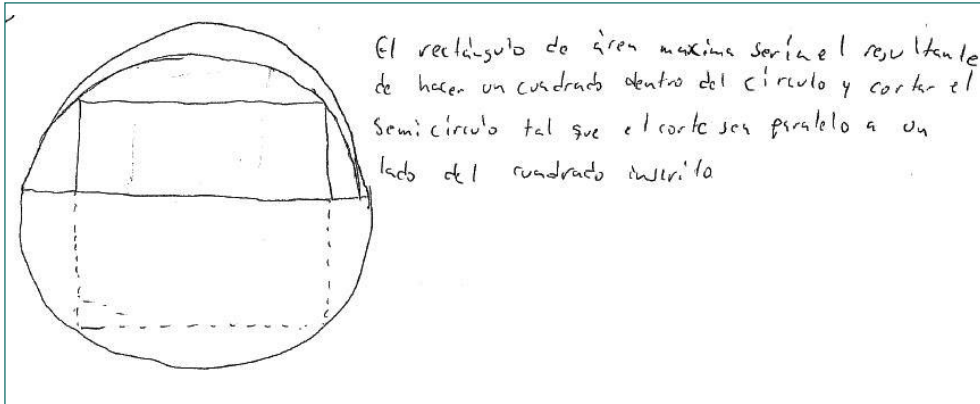 El rectángulo de área maxima seria el resultante
de hacer un cuadrado dentro del círculo y cortar el
semicírculo tal que el corte sea paralelo a un
lado del cuadrado inscrito